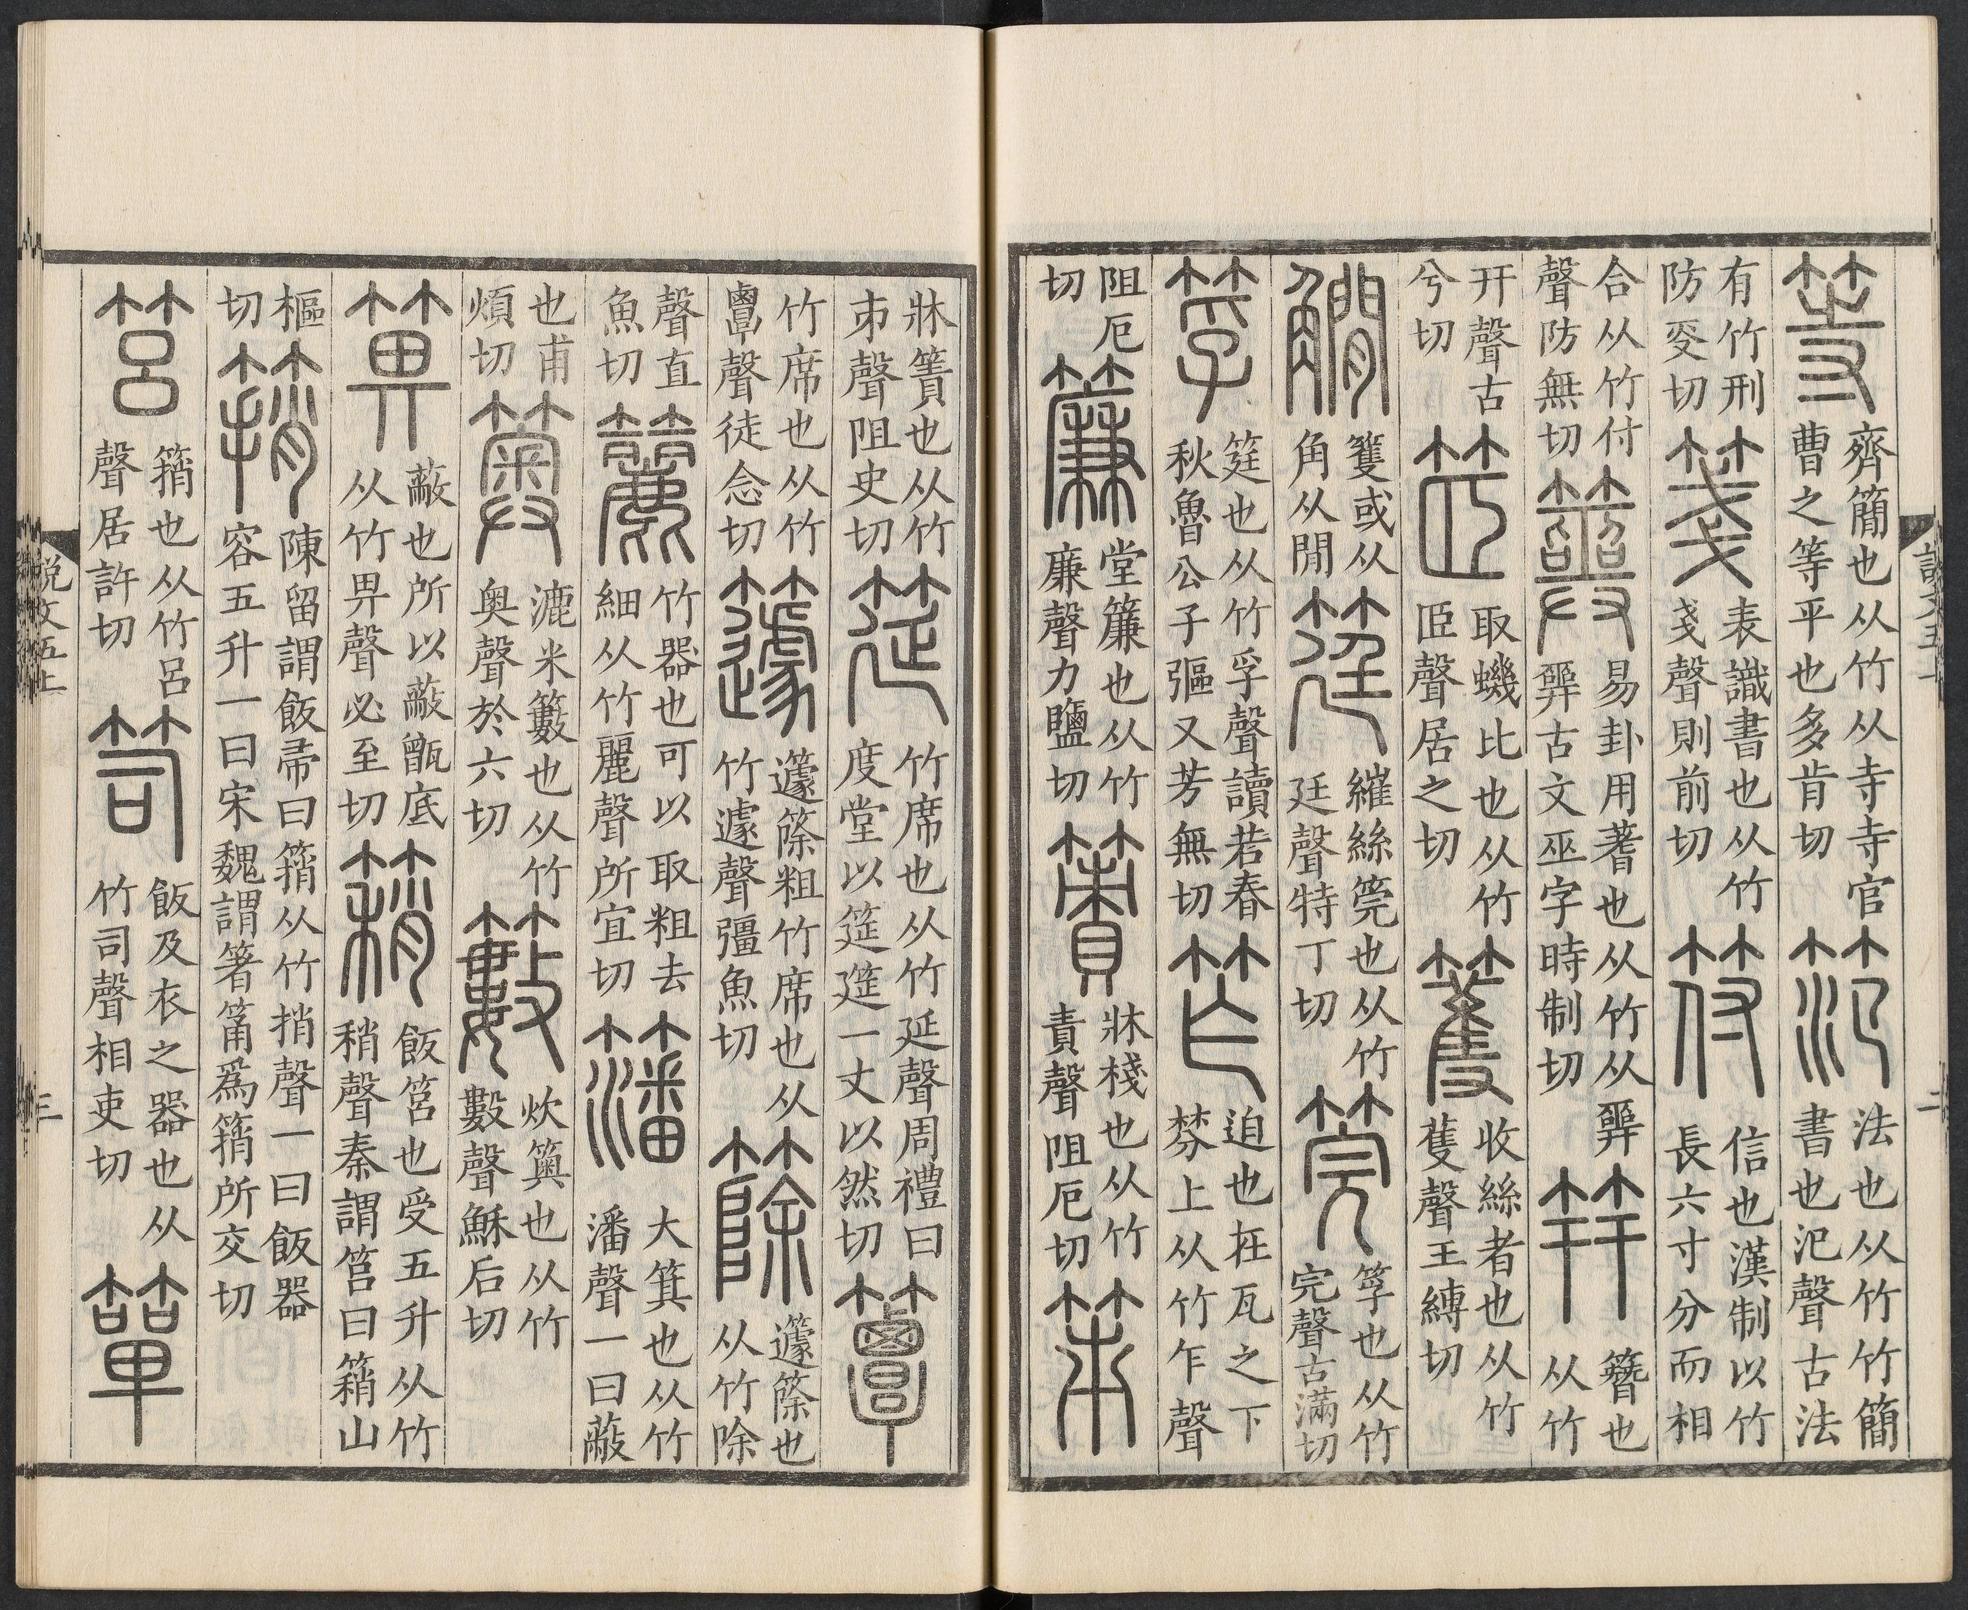 等齊簡也从竹从寺寺官曹之等平也多肯切笵法也从竹竹簡書也氾聲古法
有竹刑防㚇切箋表識書也从竹戔聲則前切符信也漢制以竹長六寸分而相
合从竹付聲防無切筮易卦用蓍也从竹从𢍮𢍮古文巫字時制切筓簪也从竹
幵聲古兮切𥬔取蟣比也从竹𦣞聲居之切籰收絲者也从竹蒦聲王縛切
䈅籰或从角从閒筳繀絲筦也从竹廷聲特丁切筦筟也从竹完聲古滿切
筟筳也从竹孚聲讀若春秋魯公子彄又芳無切笮迫也在瓦之下棼上从竹乍聲
阻厄切簾堂簾也从竹廉聲力鹽切簀牀棧也从竹責聲阻厄切笫
說文五上
二
牀簀也从竹𠂔聲阻史切筵竹席也从竹延聲周禮曰度堂以筵筵一丈以然切簟
竹席也从竹𪉷聲徒念切籧籧篨粗竹席也从竹遽聲彊魚切篨籧篨也从竹除
聲直魚切籭竹器也可以取粗去細从竹麗聲所宜切籓大箕也从竹潘聲一曰蔽
也甫煩切䉛漉米籔也从竹奥聲於六切籔炊䉛也从竹數聲穌后切
箅蔽也所以蔽甑底从竹畀聲必至切䈰飯筥也受五升从竹稍聲秦謂筥曰䈰山
樞切𥳓陳留謂飯帚曰𥳓从竹捎聲一曰飯器容五升一曰宋魏謂箸筩爲𥳓所交切
筥𥳓也从竹呂聲居許切笥飯及衣之器也从竹司聲相吏切簞
說文五上
三